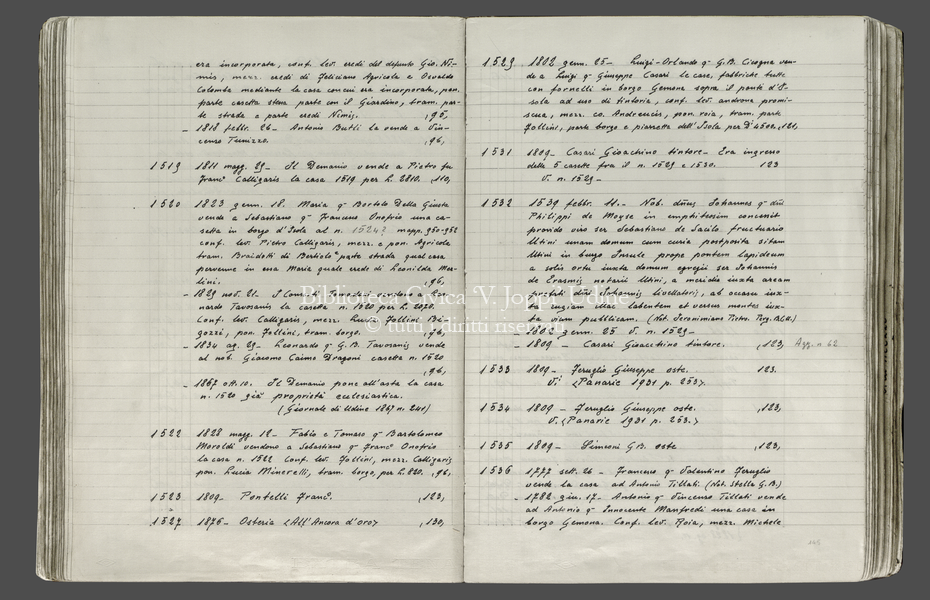 era incorporata, conf. lev. eredi del defunto Gio. Ni-
mis, mezz. eredi di Feliciano Agricola e Osvaldo
Colomba mediante la casa con cui era incorporata, pon.
parte casetta stessa parte con il Giardino, tram. par-
te strada e parte eredi Nimis. ,95,
- 1818 febbr. 26 - Antonio Butti la vende a Vin-
cenzo Tunizzo. ,96,
1519 1811 magg. 29 - Il Demanio vende a Pietro fu
Franco Calligaris la casa 1519 per L. 2810. ,110,
1520 1823 genn. 18. Maria q Bortolo Della Giusta
vende a Sebastiano q Francesco Onofrio una ca-
setta in borgo d'Isola al n. 1524? mapp. 950-952
conf. lev. Pietro Calligaris, mezz. e pon. Agricola
tram. Braidotti di Bertiolo parte strada qual casa
pervenne in essa Maria quale erede di Leonilda Mar-
tini. ,96,
- 1829 nov. 21 -
nardo Tavosanis la casetta n. 1520 per L. 2070.
Conf. lev. Calligaris, mezz. Lucia Follini Bi-
gozzi, pon. Follini, tram. borgo. ,96,
- 1834 ag. 29 - Leonardo q G.B. Tavosanis vende
al nob. Giacomo Caimo Dragoni casetta n. 1520
,96,
- 1867 ott. 10. Il Demanio pone all'asta la casa
n. 1520 già proprietà ecclesiastica.
(Giornale di Udine 1867 n. 240)
1522 1828 magg. 12 - Fabio e Tomaso q Bartolomeo
Moroldi vendono a Sebastiano q Franco Onofrio
la casa n. 1522. Conf. lev. Follini, mezz. Calligaris
pon. Lucia Minerelli, tram. borgo, per L. 820. ,96,
1523 1809 - Pontelli Franco. ,123,
1527 1876 - Osteria <All'Ancora d'oro> ,130,
1529 1802 genn. 25 - Luigi-Orlando q G.B. Cicogna ven-
de a Luigi q Giuseppe Casari le case, fabbriche tutte
con fornelli in borgo Gemona sopra il ponte d'I-
sola ad uso di tintoria, conf. lev. androna promi-
scua, mezz. co. Andreucis, pon. roia, tram. parte
Follini, parte borgo e piazzetta dell'Isola per D.i 4502. ,121,
1531 1809 - Casari Gioachino tintore - Era ingresso
delle 5 casette fra il n. 1529 e 1530. 123
V. n. 1529 -
1532 1539 febbr. 11 - Nob. dñus Johannes q dñi
Philippi de Moyse in emphiteosim concessit
provido viro ser Sebastiano de Sacilo fructuario
Utini unam domum cum curia postposita sitam
Utini in burgo Insule prope pontem lapideum
a solis ortu iuxta domum egregii ser Johannis
de Erasmis notarii Utini, a meridie iuxta aream
prefati dñi Johannis livellatoris, ab occasu iux-
ta rugiam illac labentem et versus montes iux-
ta viam publicam. (Not. Jeronimiano Pietro.
- 1802 genn. 25 V. n. 1529 -
- 1809 - Casari Gioacchino tintore. ,123, Agg. n 62
1533 1809 - Feruglio Giuseppe oste. 123.
V. <Panarie 1931 p. 253>.
1534 1809 - Feruglio Giuseppe oste. ,123,
V. <Panarie 1931 p. 253.>
1535 1809 - Simeoni GB. oste ,123,
1536 1777 sett. 26 - Francesco q Valentino Feruglio
vende la casa ad Antonio Tillati (Not. Stella G.B.)
- 1782 giu. 17 - Antonio q Vincenzo Tillati vende
ad Antonio q Innocente Manfredi una casa in
borgo Gemona. Conf. lev. Roia, mezz. Michele
Biblioteca Civica "V. Joppi" Udine
© tutti i diritti riservati